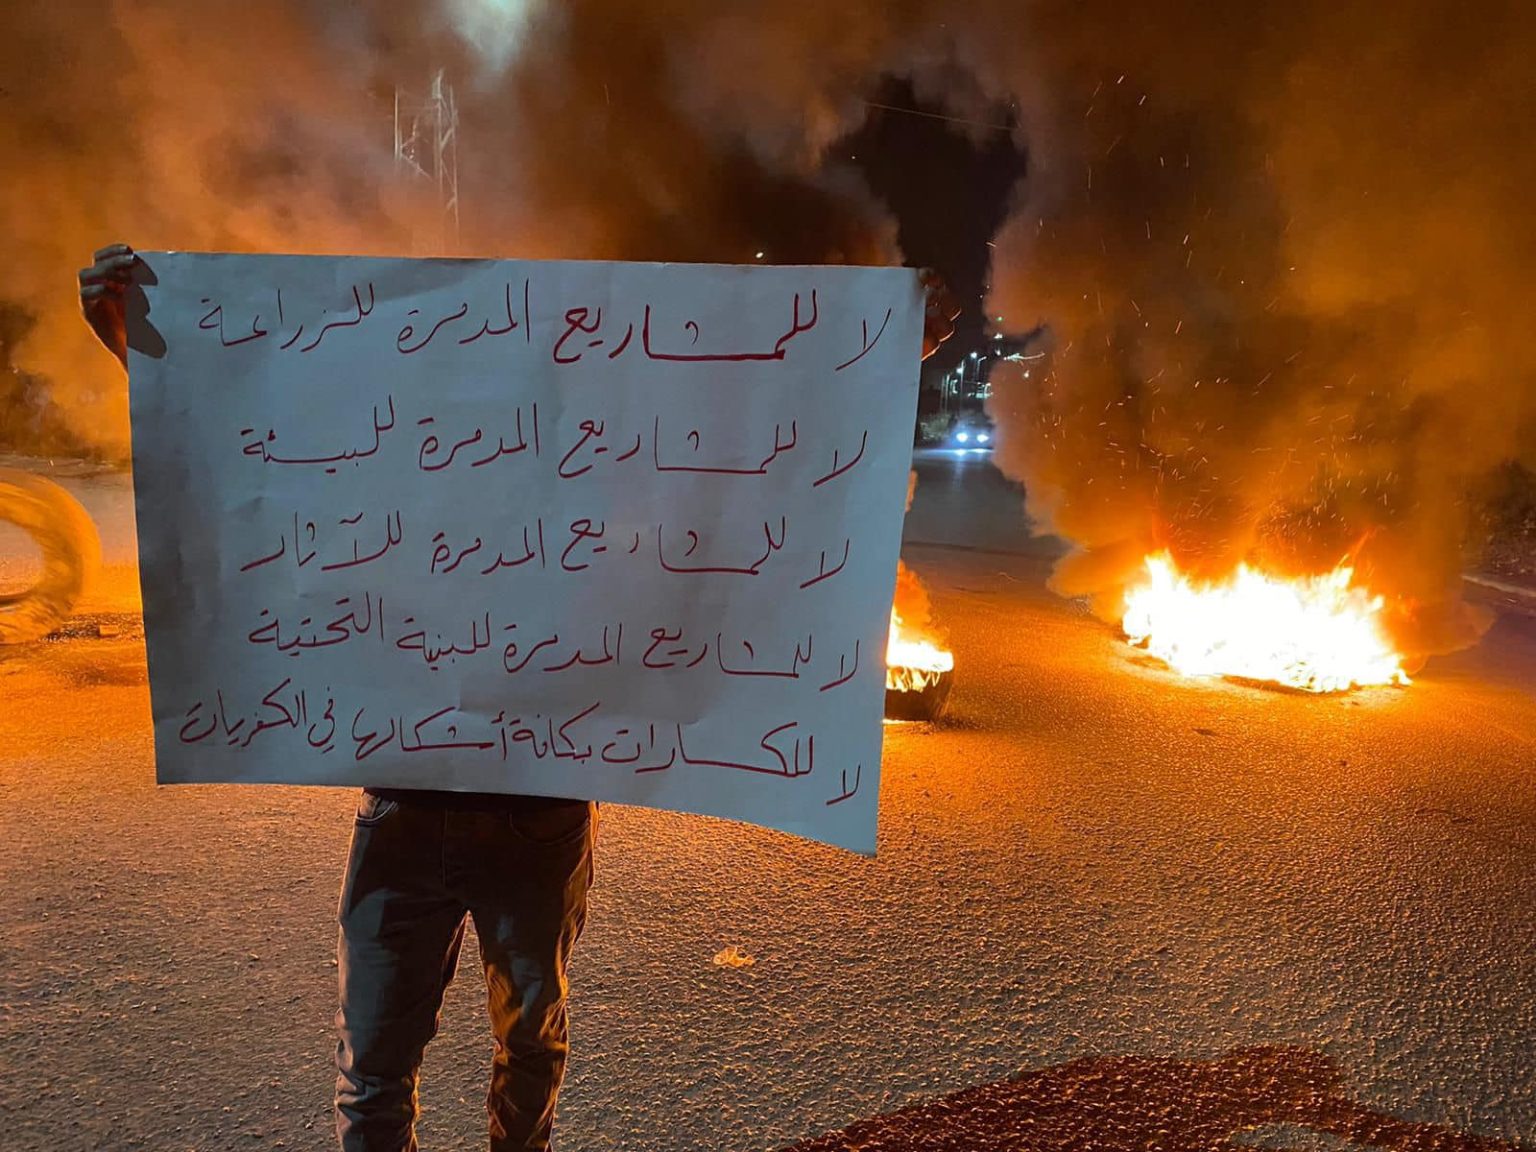 لا للمشاريع المدمرة للزراعة
لا للمشاريع المدمرة للبيئة
لا للمشاريع المدمرة للآثار
لا للمشاريع المدمرة للبنية التحتية
لا للكسارات بكافة أشكالها في الكفريات